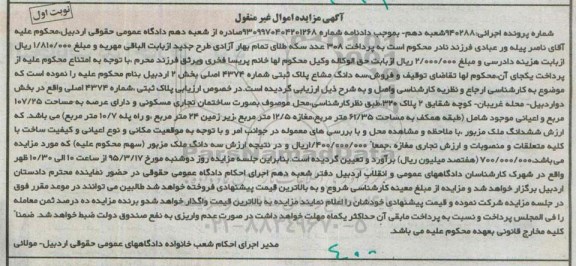 نوبت اول
آگهی مزایده اموال غیر منقول
شماره پرونده اجرائی:۹۴۰۲۸۸شعبه دهم- بموجب دادنامه شماره ۹۳۰۹۹۷۰۴۰۴۲۰۱۲۶۸صادره از شعبه دهم دادگاه عمومی حقوقی اردبیل-محکوم علیه
آقای ناصر پیله ور عبادی فرزند نادر محکوم است به پرداخت ۳۰۸ عدد سکه طلای تمام بهار آزادی طرح جدید ازبابت الباقی مهریه و مبلغ ۱/۸۱۰/۰۰۰ ریال
ازبابت هزینه دادرسی و مبلغ ۲/۰۰۰/۰۰۰ ریال ازبابت حق الوکاله وکیل محکوم لها خانم پریسا فخری ویرثق فرزند محرم .با توجه به امتناع محکوم علیه از
پرداخت یکجای آن،محکوم لها تقاضای توقیف و فروش،سه دانگ مشاع پلاک ثبتی شماره ۴۳۷۴ اصلی بخش ۲ اردبیل بنام محکوم علیه را نموده است که
موضوع به کارشناسی ارجاع و نظریه کارشناسی واصل و به شرح ذیل ارزیابی گردیده است.در خصوص ارزیابی پلاک ثبتی ،شماره ۴۳۷۴ اصلی واقع در بخش
دواردبیل- محله غریبان- کوچه شقایق ۲ پلاک۲۳۰،طبق نظرکارشناسی،محل موصوف بصورت ساختمان تجاری مسکونی و دارای عرصه به مساحت ۱۰۷/۲۵
مربع و اعیانی موجود شامل (طبقه همکف به مساحت ۶۱/۳۵ متر مربع،مغازه ۱۲/۵ متر مربع ،زیر زمین ۲۴ متر مربع ،و راه پله ۱۰/۷ متر مربع) می باشد. که
ارزش ششدانگ ملک مزبور ،با ملاحظه و مشاهده محل و با بررسی های معموله در جوانب امر و با توجه به موقعیت مکانی و نوع اعیانی و کیفیت ساخت با
کلیه متعلقات و منصوبات و ارزش تجاری مغازه ،جمعا ۱/۴۰۰/۰۰۰/۰۰۰ریال و در نتیجه ارزش سه دانگ ملک مزبور (سهم محکوم علیه) که مورد مزایده
می باشد،۷۰۰/۰۰۰/۰۰۰ (هفتصد میلیون ریال) برآورد و تعیین گردیده است. بنابراین جلسه مزایده روز دوشنبه مورخ ۹۵/۳/۱۷ از ساعت ۱۰ الی ۱۰/۳۰ ظهر
واقع در شهرک کارشناسان دادگاههای عمومی و انقلاب اردبیل دفتر شعبه دهم اجرای احکام دادگاه عمومی حقوقی در حضور نماینده محترم دادستان
اردبیل برگزار خواهد شد و مزایده از مبلغ معینه کارشناسی شروع و به بالاترین قیمت پیشنهادی فروخته خواهد شد طالبین می توانند در موعد مقرر فوق
در جلسه مزایده شرکت نموده و قیمت پیشنهادی خودشان را اعلام نمایند مزایده به بالاترین قیمت واگذار خواهد شد.و برنده مزایده ده درصد ثمن معامله
را فی المجلس پرداخت و نسبت به پرداخت مابقی آن حداکثر یکماه مهلت خواهد داشت در صورت عدم واریزی به نفع صندوق دولت ضبط خواهد شد. ضمنا
کلیه مخارج قانونی بعهده محکوم علیه می باشد.
مدیر اجرای احکام شعب خانواده دادگاههای عمومی حقوقی اردبیل- مولائی
۰۲۱-۸۸۳۴۹۶۷۰-۵